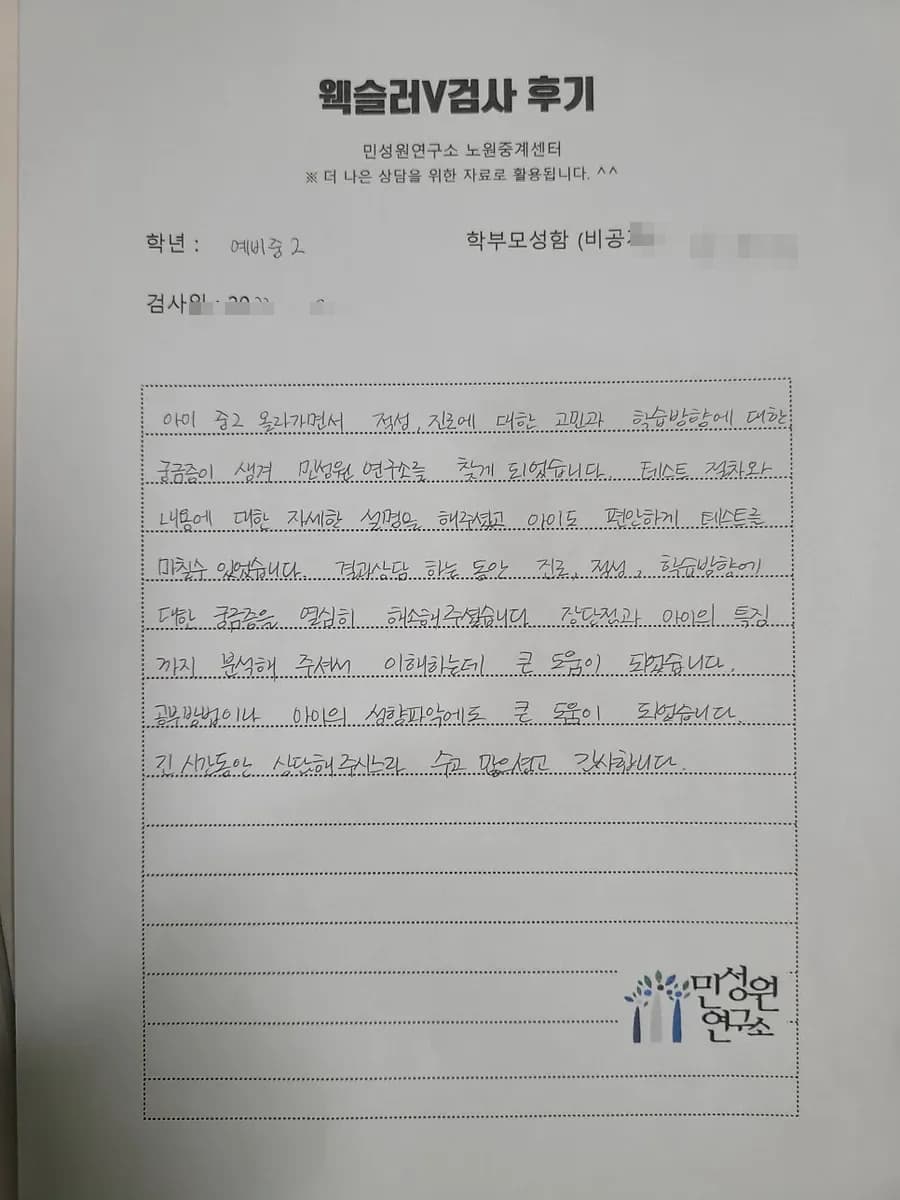 웩슬러V검사 후기
민성원연구소 노원중계센터
※ 더 나은 상담을 위한 자료로 활용됩니다. ^^
학년 : 예비중2
학부모성함 (비공
검사일 :
아이 중2 올라가면서 적성, 진로에 대한 고민과 학습방향에 대한
궁금증이 생겨 민성원 연구소를 찾게 되었습니다. 테스트 절차와
내용에 대한 자세한 설명을 해주셨고 아이도 편안하게 테스트를
마칠수 있었습니다. 결과상담 하는 동안 진로, 적성, 학습방향에
대한 궁금증을 열심히 해소해주셨습니다 장단점과 아이의 특징
까지 분석해 주셔서 이해하는데 큰 도움이 되었습니다.
공부방법이나 아이의 성향파악에도 큰 도움이 되었습니다.
긴 시간동안 상담해주시느라 수고 많으셨고 감사합니다.
민성원
연구소